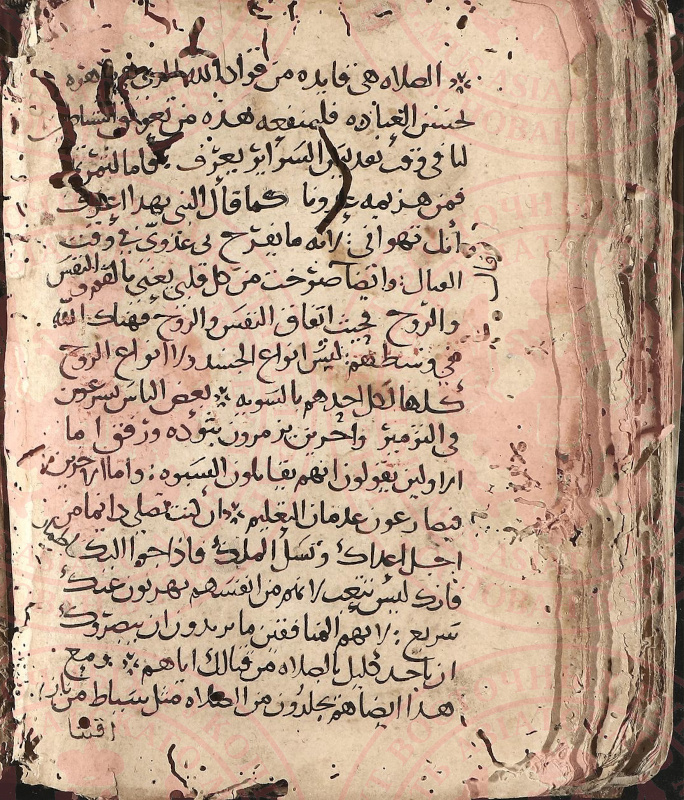 الصلاه هي فايده من قواد الله
لحسن العباده فليمنعه هذه من
لنا في وقت بعد ليس السراير يعرف فاما
فمن هزيمه عدونا كما قال النبي بهذا اعرف
انك تهواني لانه ما يفرح بي عدوي في وقت
القتال وايضا صرخت من كل قلبي يعني بالفم والنفس
وقال
والروح فحيث اتفاق النفس والروح فهناك الله
في وسطهم ليس انواع الجسد ولا انواع الروح
كلها لكل احدهم بالسويه بعض الناس يسرعون
في التزمير واخرين يزمرون بتوده ورفق اما
الاولين يقولون انهم يقاتلون السبوه واما الاخرين
فيصارعون عدمان التعليم ان كنت تصلي دايما من
اجل اعداك وتسل الملك فاذا جوا اليك
فانك ليس تتعب لانهم من انفسهم يهربون عنك
سريع لانهم المنافقين ما يريدون ان يبصروك
ان تاخذ كليل بالصلاه من قتالك اياهم ومع
هذا ايضا هم يجلدون من الصلاه مثل سياط من نار
اقتنا